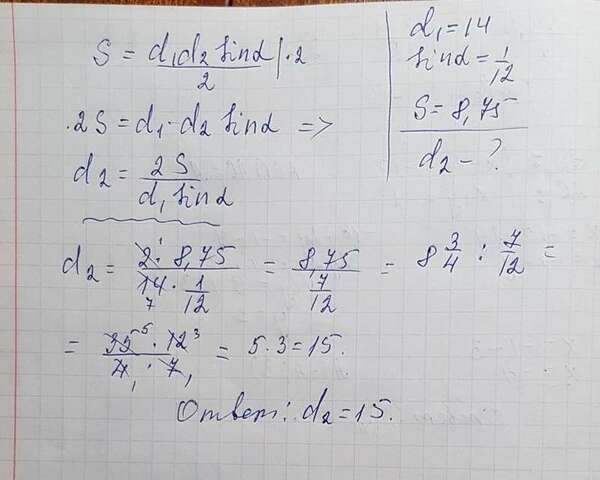 S = d₁d₂ sinα / 2 | · 2
· 2S = d₁ · d₂ sinα =>
d₂ = 2S / d₁ sinα
d₁ = 14
sinα = 1/12
S = 8,75
d₂ - ?
d₂ = 2 · 8,75 / 14 · 1/12 = 8,75 / 7/12 = 8 3/4 : 7/12 =
= 35 · 12 / 4 · 7 = 5 · 3 = 15.
Ответ: d₂ = 15.